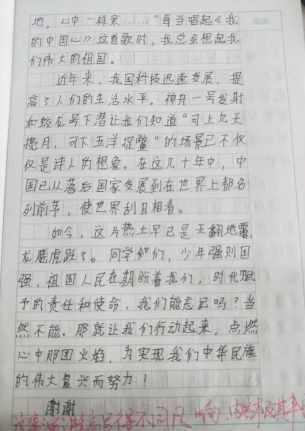 地，心中一样亲……"每当唱起《我
的中国心》这首歌时，我总会想起我
们伟大的祖国。
近年来，我国科技迅速发展，提
高了人们的生活水平。神舟一号发射
和蛟龙号下潜让我们知道"可上九天
揽月，可下五洋捉鳖"的场景已不仅
仅是诗人的想象。在这几十年中，中
国已从落后国家发展到在世界上都名
列前茅，使世界刮目相看。
如今，这片热土早已是天翻地覆，
龙腾虎跃了。同学们，少年强则国
强，祖国人民在期盼着我们，时代赋
予的责任和使命，我们能忘记吗？当
然不能。那就让我们行动起来，点燃
心中那团火焰，为实现我们中华民族
的伟大复兴而努力！
谢谢